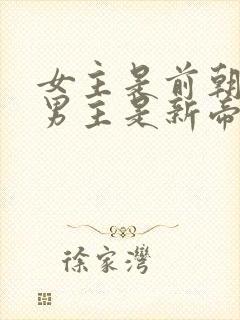 女主是前朝
男主是新帝
徐家灣